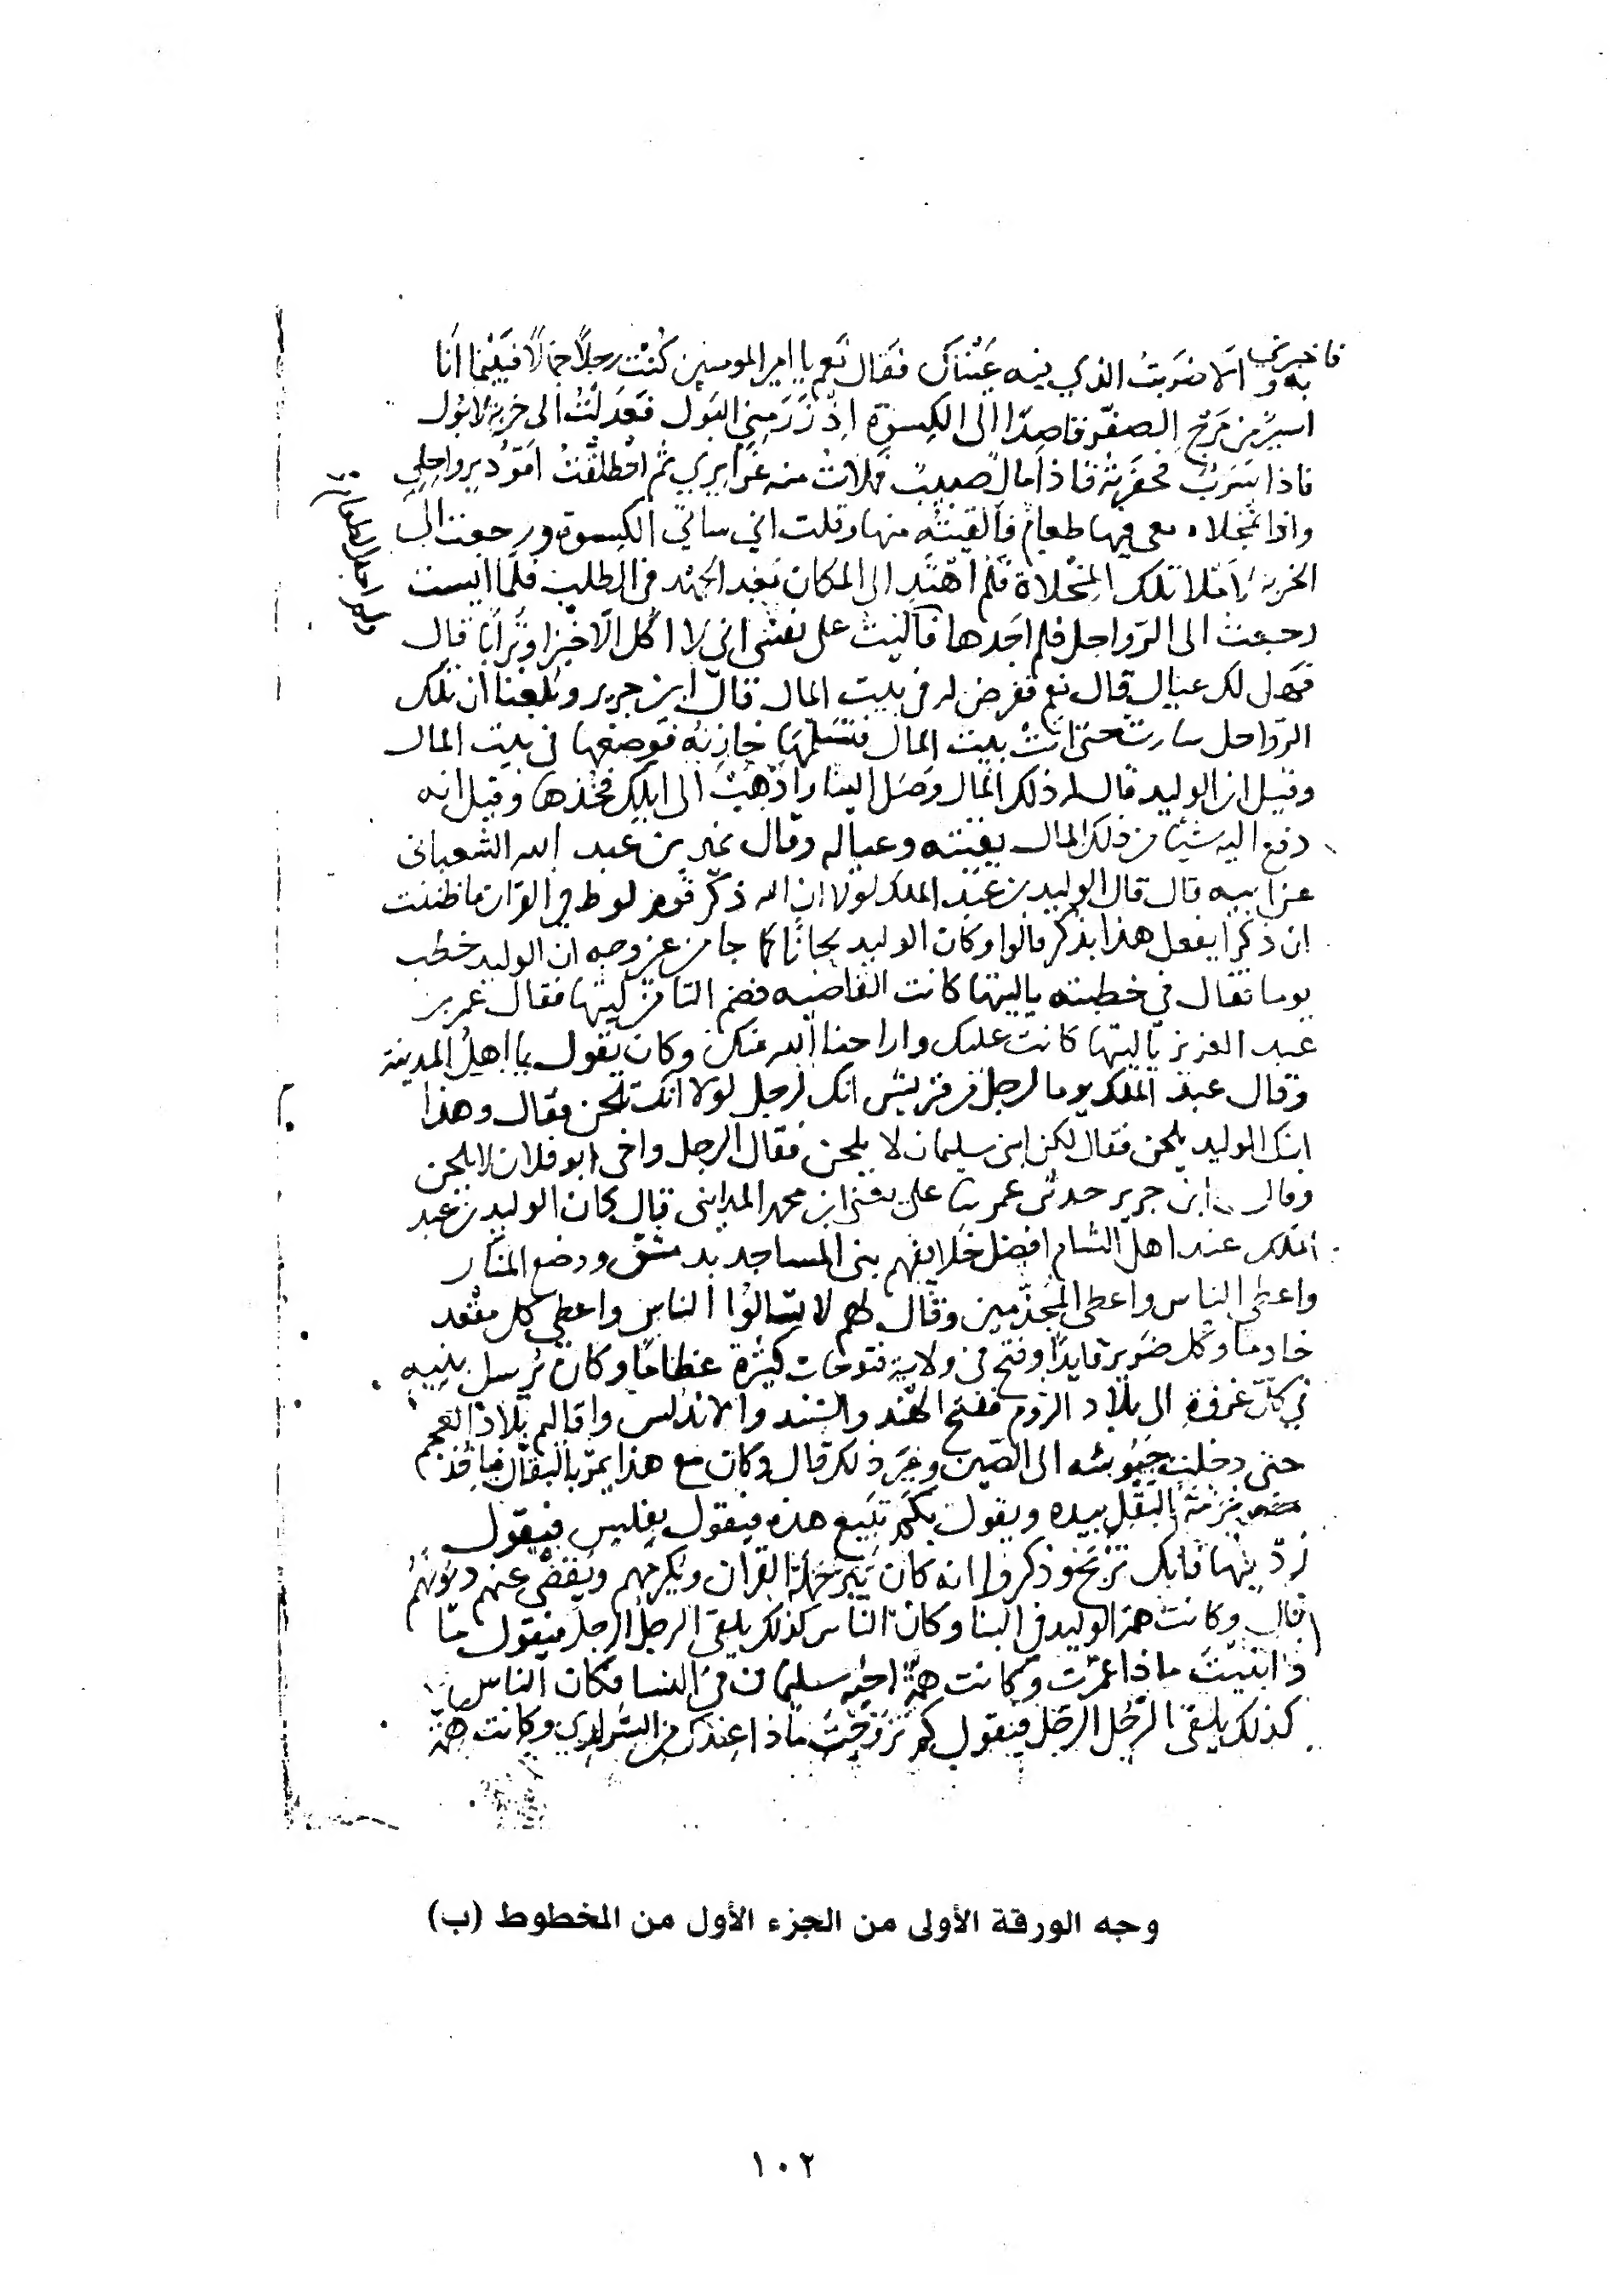 فاخبرني
به والا ضربت الذي فيه عيناك فقال نعم يا امير المومنين كنت رجلا جمالا فبينما انا
اسير من مرج الصفر قاصدا الى الكسوة اذ زرمني البول فعدلت الى خربة لابول
فاذا سرب فحفرته فاذا مال صبيب فملات منه غرايري ثم انطلقت اقود برواحلي
واذا بمخلاه معى فيها طعام فالقيته منها وقلت اني ساتي الكسوة ورجعت الى
الخربة لاملا تلك المخلاة فلم اهتد الى المكان بعد الجهد في الطلب فلما ايست
رجعت الى الرواحل فلم اجدها فاليت على نفسى انى لا اكل الا خبزا وترابا قال
فهل لك عيال قال نعم ففرض له في بيت المال قال ابن جرير وبلغنا ان تلك
الرواحل سارت حتى اتت بيت المال فتسلمها خازنه فوضعها في بيت المال
وقيل ان الوليد قال له ذلك المال وصل الينا واذهب الى ابلك فخذها وقيل انه
دفع اليه شيئا من ذلك المال يقيته وعياله وقال نمير بن عبد الله الشعبانى
عن ابيه قال قال الوليد بن عبد الملك لولا ان الله ذكر قوم لوط في القران ما ظننت
ان ذكرا يفعل هذا بذكر قالوا وكان الوليد لحانا كما جا من غير وجه ان الوليد خطب
يوما فقال في خطبته ياليتها كانت القاضيه فضم التا من ليتها فقال عمر بن
عبد العزيز ياليتها كانت عليك واراحنا الله منك وكان يقول يا اهل المدينة
وقال عبد الملك يوما لرجل من قريش انك لرجل لولا انك تلحن فقال وهذا
ابنك الوليد يلحن فقال لكن ابنى سليمان لا يلحن فقال الرجل واخى ابو فلان لا يلحن
وقال ابن جرير حدثنى عمر ثنا على يعنى ابن محمد المداينى قال كان الوليد بن عبد
الملك عند اهل الشام افضل خلايفهم بنى المساجد بدمشق ووضع المنار
واعطى الناس واعطى المجذمين وقال لهم لا تسالوا الناس واعطى كل مقعد
خادما وكل ضرير قايدا وفتح في ولايته فتوحات كثيرة عظاما وكان يرسل بنيه
في كل غزوة الى بلاد الروم ففتح الهند والسند والاندلس واقاليم بلاد العجم
حتى دخلت جيوشه الى الصين وغير ذلك قال وكان مع هذا يمر بالبقال فياخذ
حزمة البقل بيده ويقول بكم تبيع هذه فيقول بفلس فيقول
زد فيها فانك تربح وذكروا انه كان يبر حملة القران ويكرمهم ويقضى عنهم ديونهم
قال وكانت همة الوليد في البنا وكان الناس كذلك يلقى الرجل الرجل فيقول ما
ذا بنيت ماذا عمرت وكانت همة اخيه سليمان في النسا فكان الناس
كذلك يلقى الرجل الرجل فيقول كم تزوجت ماذا عندك من السراري وكانت همة
وجه الورقة الأولى من الجزء الأول من المخطوط (ب)
١٠٢